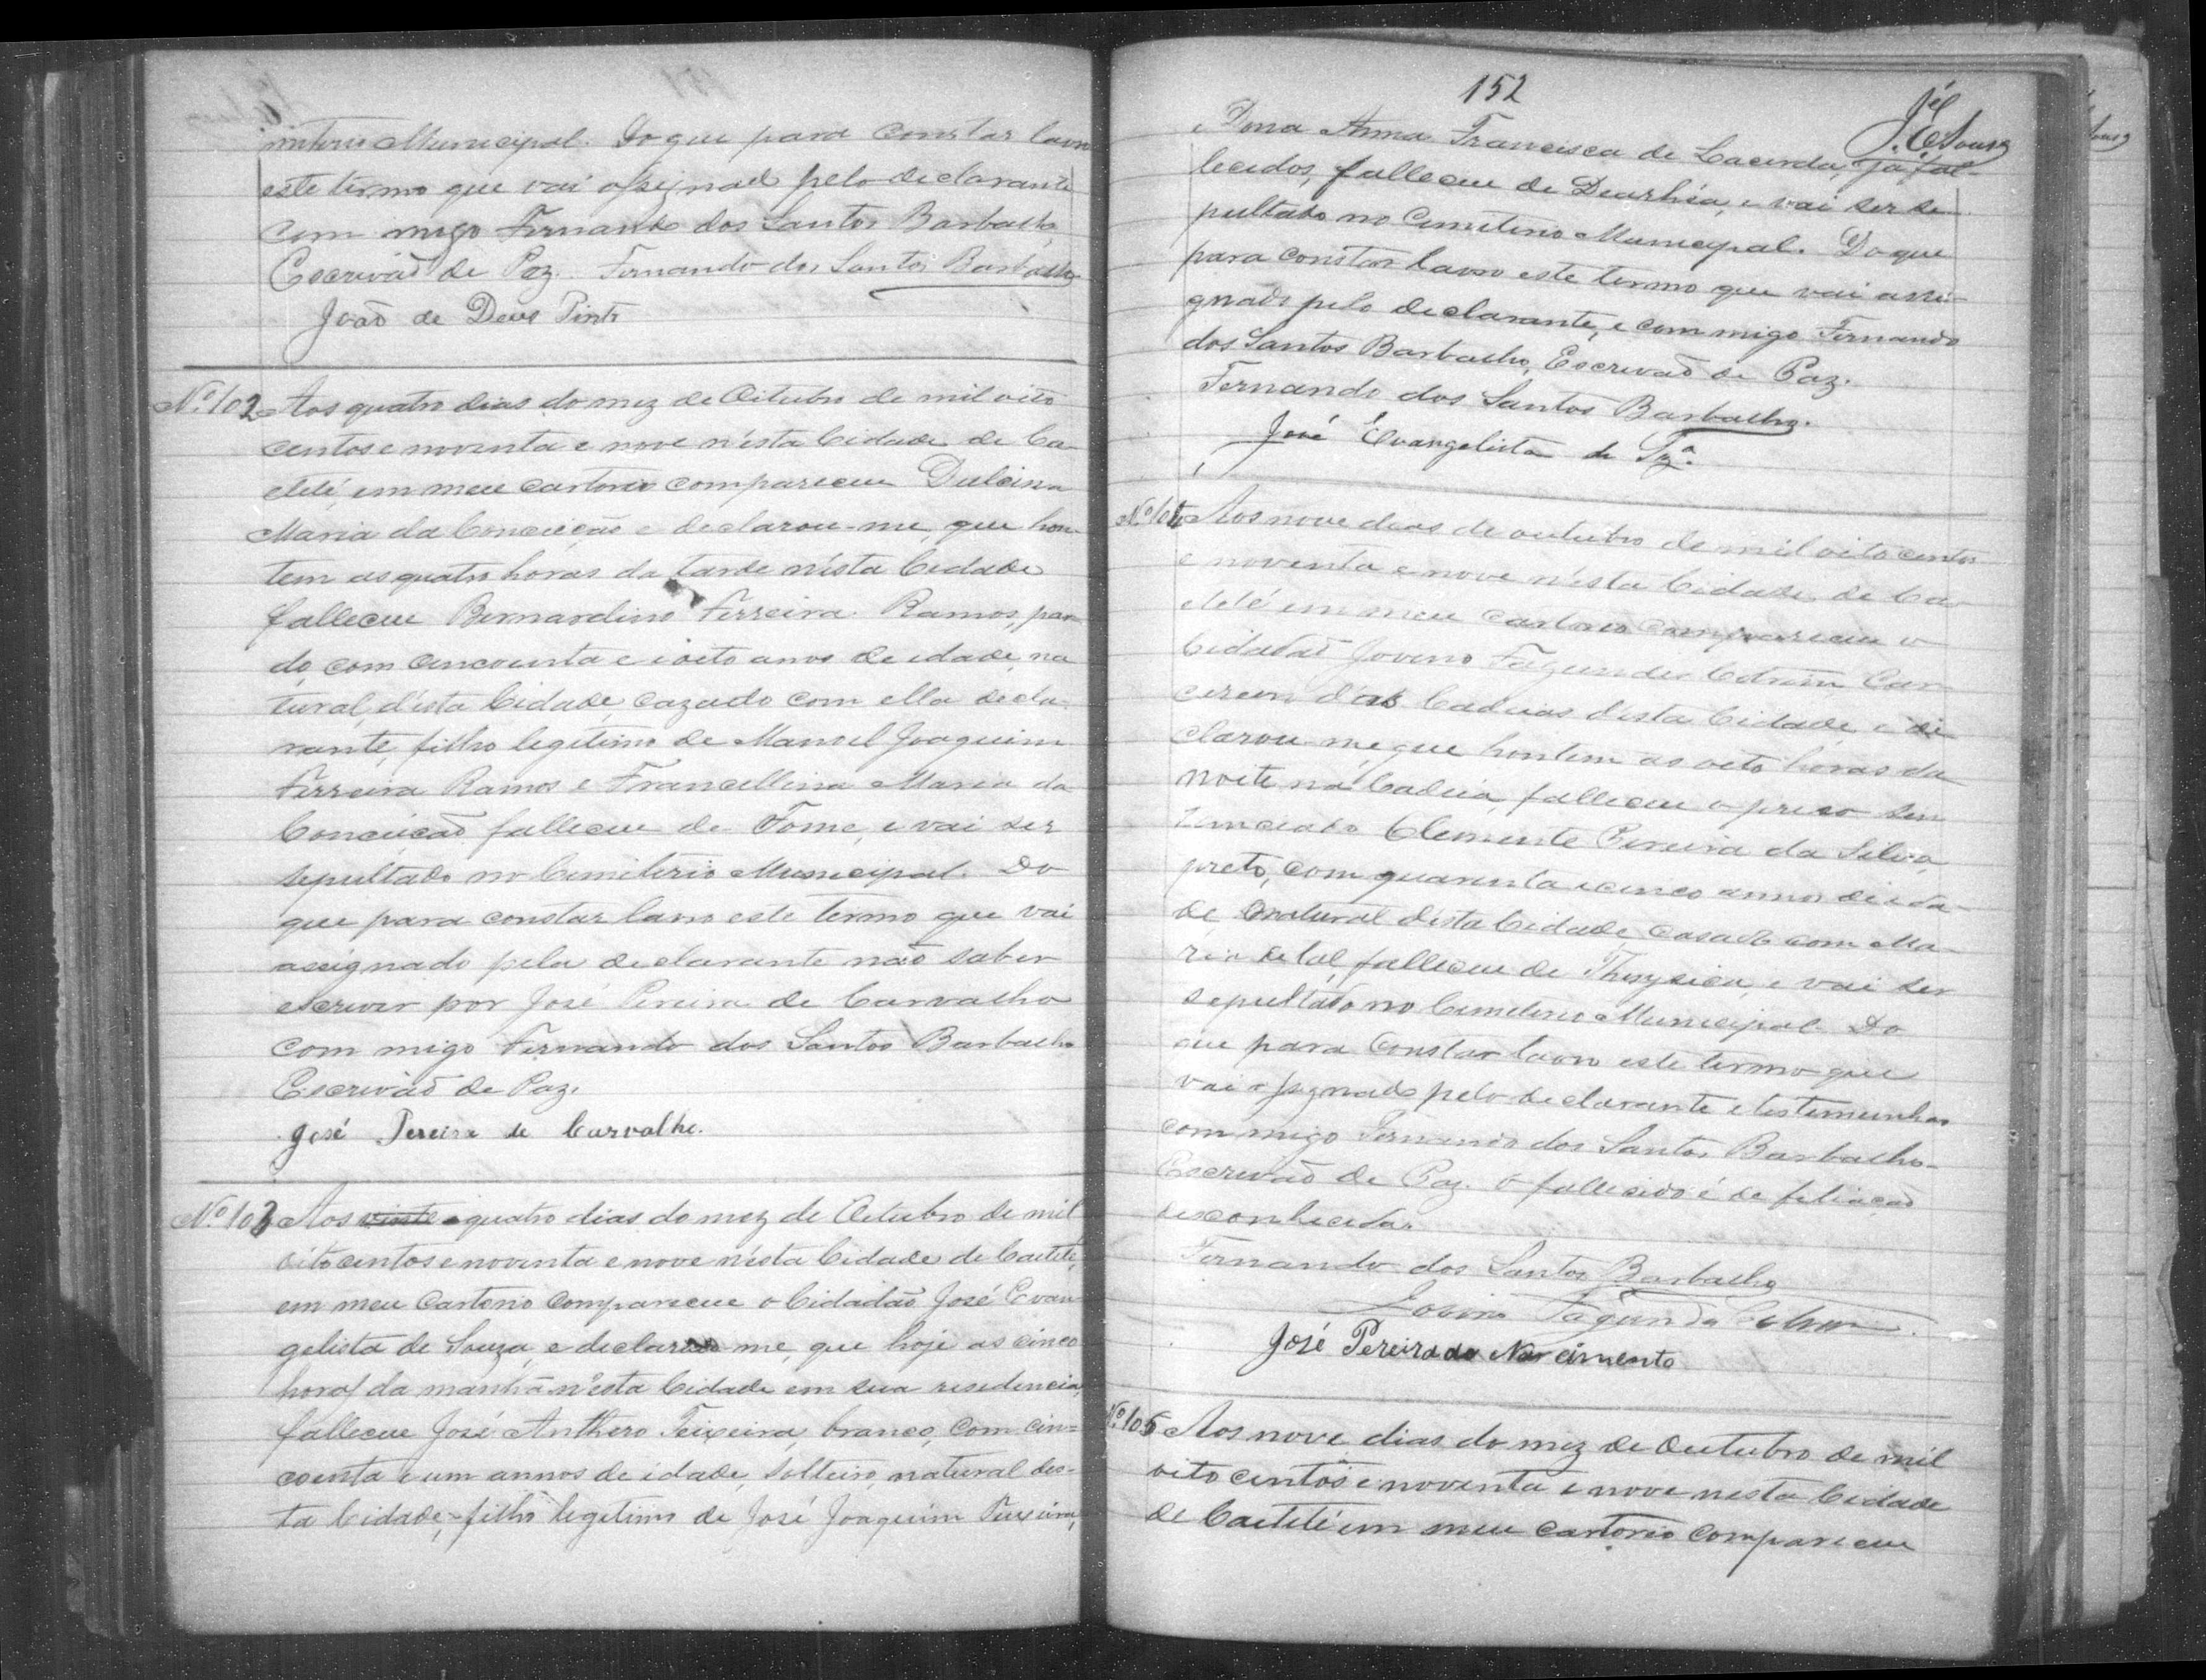 miterio Municipal. Do que para constar lavro
este termo que vai assignado pelo declarante
com migo Fernando dos Santos Barbalho
Escrivaõ de Paz. Fernando dos Santos Barbalho
Joaõ de Deus Pinto
Nº 102 Aos quatro dias do mez de Oitubro de mil oito
centos e noventa e nove n'esta Cidade de Ca-
eteté, em meu cartorio compareceu Dulcina
Maria da Conceição e declarou-me, que hon-
tem as quatro horas da tarde n'esta Cidade
falleceu Bernardino Ferreira Ramos, par-
do, com cincoenta e oito anos de idade, na
tural, d'esta Cidade, cazado com ella decla-
rante, filho legitimo de Manoel Joaquim
Ferreira Ramos e Francellina Maria da
Conceicaõ falleceu de Fome, e vai ser
sepultado no Cemiterio Municipal. Do
que para constar lavro este termo que vai
assignado pela declarante naõ saber
escrever por José Pereira de Carvalho
com migo Fernando dos Santos Barbalho
Escrivaõ de Paz.
José Pereira de Carvalho.
Nº 103 Aos vinte e quatro dias do mez de Oitubro de mil
oito centos e noventa e nove n'esta Cidade de Caeteté,
em meu Cartorio compareceu o Cidadaõ José Evan-
gelista de Souza, e declarou me, que hoje as cinco
horas da manhã n'esta Cidade em sua residencia,
falleceu José Anthero Teixeira, branco, com cin=
coenta e um annos de idade, solteiro, natural des-
ta Cidade, filho legitimo de José Joaquim Teixeira,
152
J. E. Souza
e Dona Anna Francisca de Lacerda, já fal-
lecidos, falleceu de Diarhéa, e vai ser se-
pultado no Cemiterio Municipal. Do que
para constar lavro este termo que vai assi-
gnado pelo declarante, e com migo Fernando
dos Santos Barbalho, Escrivaõ de Paz.
Fernando dos Santos Barbalho.
José Evangelista de Sz.ª
Nº 104 Aos nove dias de outubro de mil oito centos
e noventa e nove n'esta Cidade de Ca-
eteté em meu cartorio compareceu o
Cidadaõ Jovino Fagundes Cotrim Car-
cereiro das Cadeias d'esta Cidade, e de
clarou-me, que hontem as oito horas da
noite na Cadeia, falleceu o preso sen
tenciado Clemente Pereira da Silva,
preto, com quarenta e cinco annos de ida-
de, natural d'esta Cidade, casado com Ma-
ria de tal, falleceu de Thysica, e vai ser
sepultado no Cemiterio Municipal. Do
que para constar lavro este termo que
vai assignado pelo declarante e testemunhas
com migo Fernando dos Santos Barbalho
Escrivaõ de Paz. O fallecido é de filiaçaõ
desconhecida.
Fernando dos Santos Barbalho
Jovino Fagundes Cotrim.
José Pereira do Nascimento
Nº 105 Aos nove dias do mez de Outubro de mil
oito centos e noventa e nove nesta Cidade
de Caeteté em meu cartorio compareceu